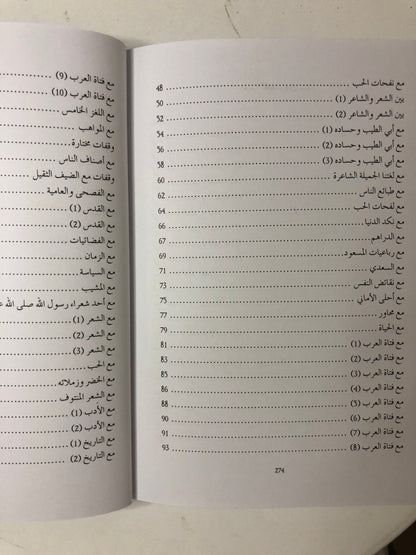 مع نفحات الحب ........ 48
بين الشعر والشاعر (1) ........ 50
بين الشعر والشاعر (2) ........ 52
مع أبي الطيب وحساده (1) ........ 54
مع أبي الطيب وحساده (2) ........ 56
مع أبي الطيب وحساده (3) ........ 58
مع لغتنا الجميلة الشاعرة ........ 60
مع طبائع الناس ........ 62
مع لفحات الحب ........ 64
مع نكد الدنيا ........ 66
مع الدراهم ........ 67
مع رباعيات المسعود ........ 69
مع السعدي ........ 71
مع نقائض النفس ........ 73
مع أحلى الأماني ........ 75
مع محاور ........ 77
مع الحياة ........ 79
مع فتاة العرب (1) ........ 81
مع فتاة العرب (2) ........ 83
مع فتاة العرب (3) ........ 85
مع فتاة العرب (4) ........ 86
مع فتاة العرب (5) ........ 88
مع فتاة العرب (6) ........ 90
مع فتاة العرب (7) ........ 91
مع فتاة العرب (8) ........ 93
274
مع فتاة العرب (9) ........
مع فتاة العرب (10) ........
مع اللغز الخامس ........
مع المواهب ........
وقفات مختارة ........
مع أصناف الناس ........
وقفات مع الضيف الثقيل ........
مع الفصحى والعامية ........
مع القدس (1) ........
مع القدس (2) ........
مع الفضائيات ........
مع الزمان ........
مع السياسة ........
مع المشيب ........
مع أحد شعراء رسول الله صلى الله
مع الشعر (1) ........
مع الشعر (2) ........
مع الشعر (3) ........
مع الحب ........
مع الخضر وزملائه ........
مع الشعر المنتوف ........
مع الأدب (1) ........
مع الأدب (2) ........
مع التاريخ (1) ........
مع التاريخ (2) ........